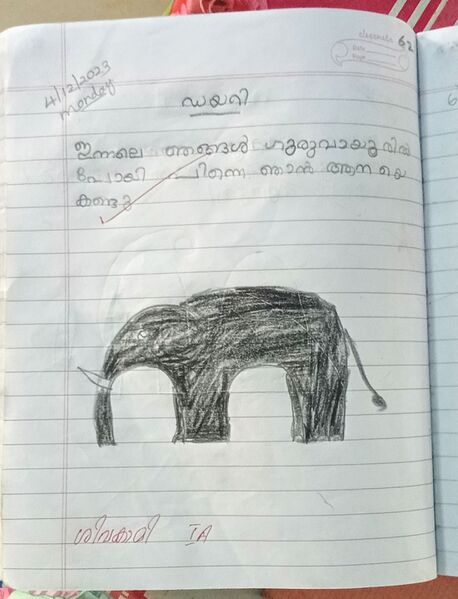 classmate
62
Date
Page
4/12/2023
Monday
ഡയറി
ഇന്നലെ ഞങ്ങൾ ഗുരുവായൂരിൽ
പോയി പിന്നെ ഞാൻ ആനയെ
കണ്ടു
ശിവകാമി I A